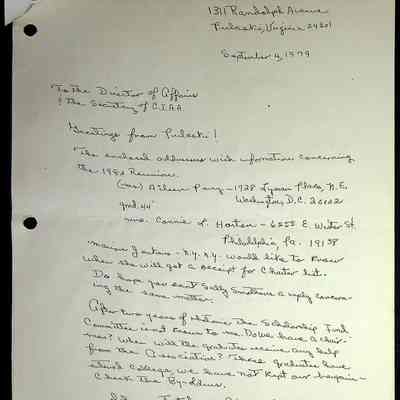 1311 Randolph Avenue
Pulaski, Virginia 24301
September 4, 1979
To the Director of Affairs
& the Secretary of C.I.A.A.
Greetings from Pulaski!
The enclosed addresses wish information concerning
the 1980 Reunion.
(mrs) Aileen 1928 Lyman Place, N.E.
Washington, D.C. 20002
grad. 44
mrs. Connie L. Horton - E.
Philadelphia, Pa. 19138
Jenkins - N.Y. N.Y. would like to know
when she will get a receipt for Charter list.
Do hope you sent Sally a reply concern-
ing the same matter.
After two years of the Scholarship Fund
Committee to me. Do we have a chair-
man? When will the graduates receive any help
from the Association? These graduates have
entered College, we have not kept our bargain -
Check the By-Laws.